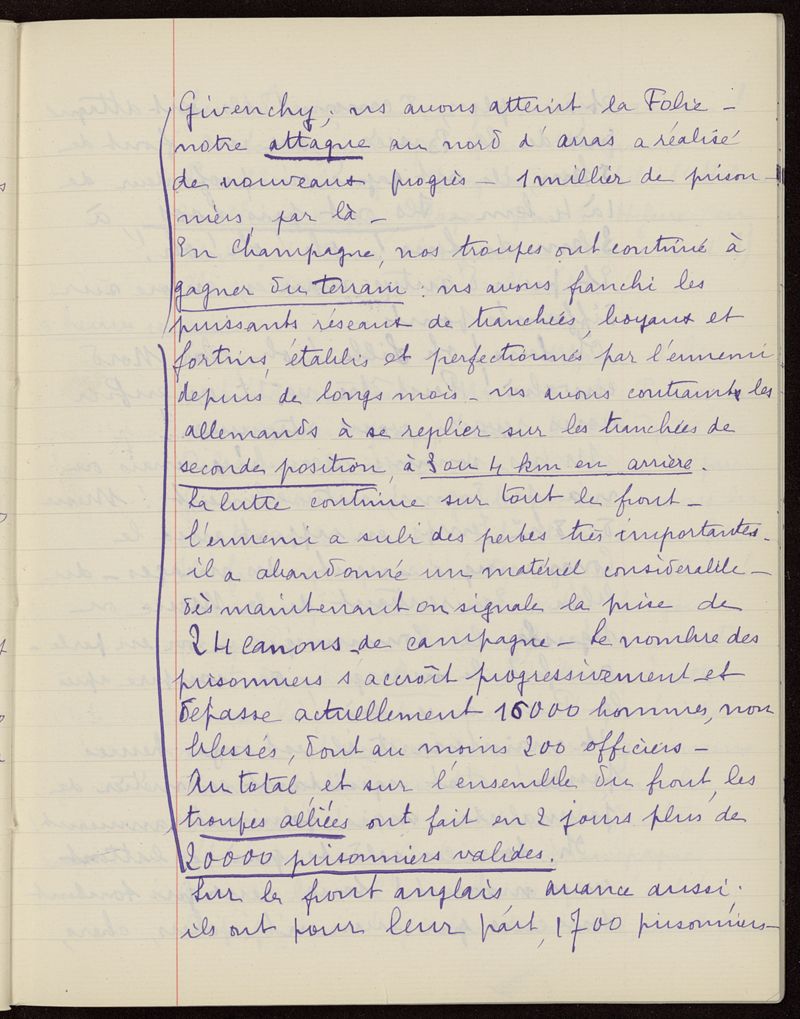 Givenchy ; ns avons atteint la Folie –
notre attaque au nord d'arras a réalisé
de nouveaux progrès – 1 millier de prison-
niers, par là –
En Champagne, nos troupes ont continué à
gagner du terrain : ns avons franchi les
puissants réseaux de tranchées, boyaux et
fortins, établis et perfectionnés par l'ennemi
depuis de longs mois – ns avons contraint les
allemands à se replier sur les tranchées de
seconde position, à 3 ou 4 km en arrière.
La lutte continue sur tout le front –
l'ennemi a subi des pertes très importantes –
il a abandonné un matériel considérable –
dès maintenant on signale la prise de
24 canons de campagne – Le nombre des
prisonniers s'accroît progressivement et
dépasse actuellement 16000 hommes, non
blessés, dont au moins 200 officiers –
Au total, et sur l'ensemble du front, les
troupes alliées ont fait en 2 jours plus de
20000 prisonniers valides.
Sur le front anglais, avance aussi ;
ils ont pour leur part, 1700 prisonniers –